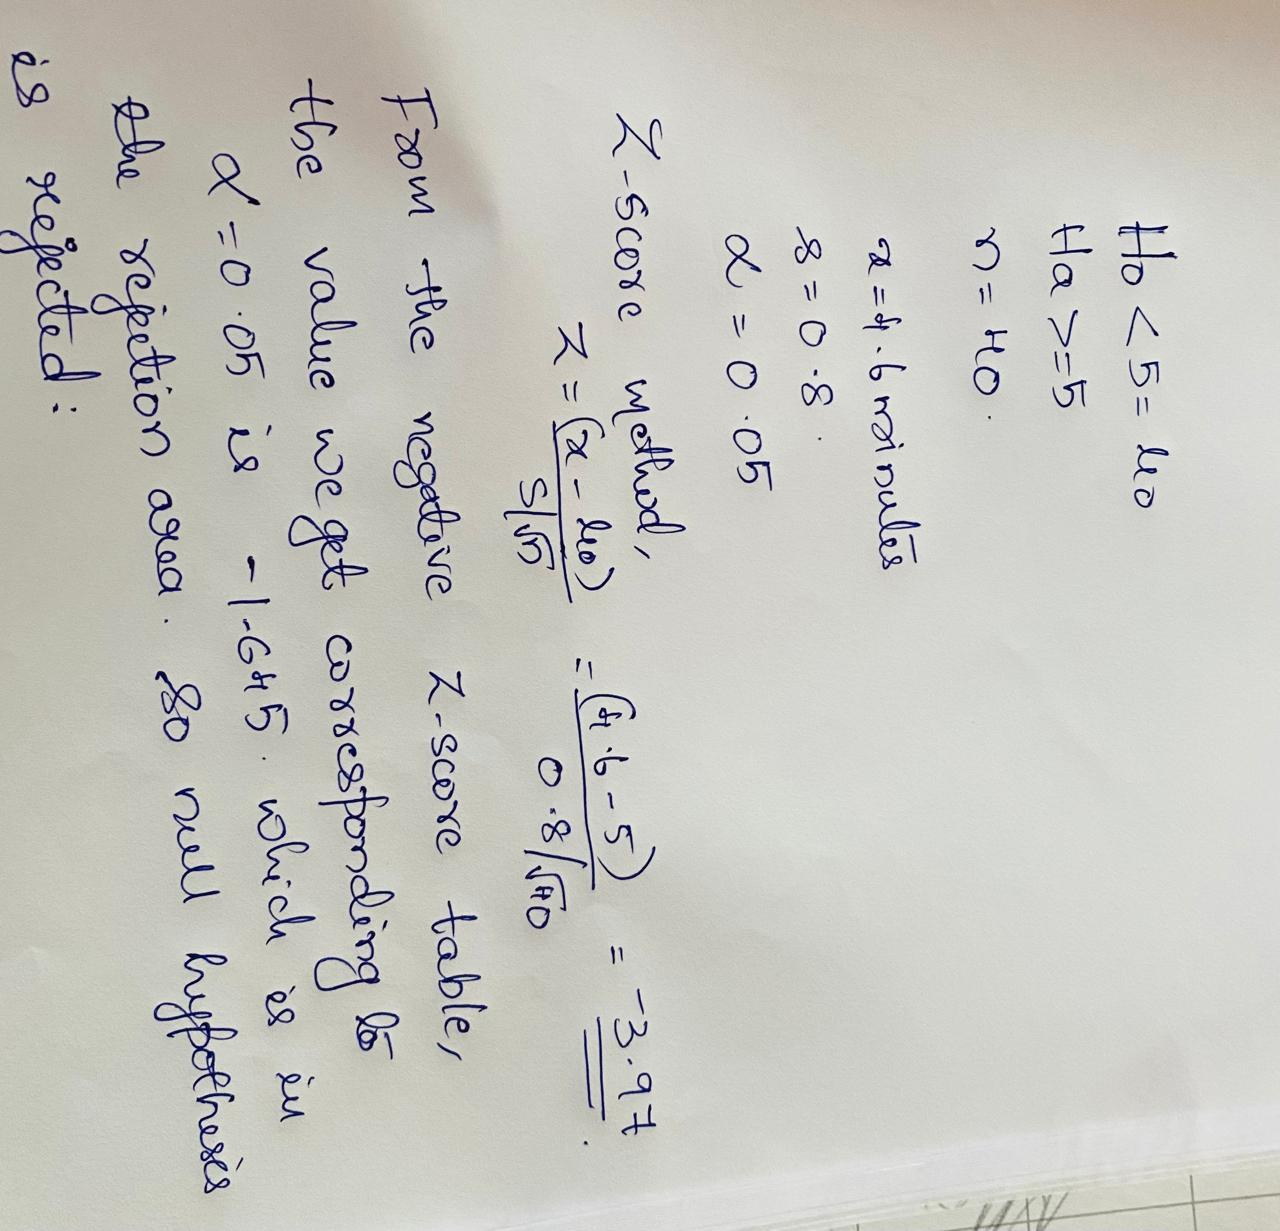 H0 < 5 = μ0
Ha >= 5
n = 40.
x = 4.6 minutes
s = 0.8.
α = 0.05
Z-score method,
Z = (x - μ0) / S/√n = (4.6 - 5) / 0.8/√40 = -3.97.
From the negative z-score table,
the value we get corresponding to
α = 0.05 is -1.645. which is in
the rejection area. So null hypothesis
is rejected: